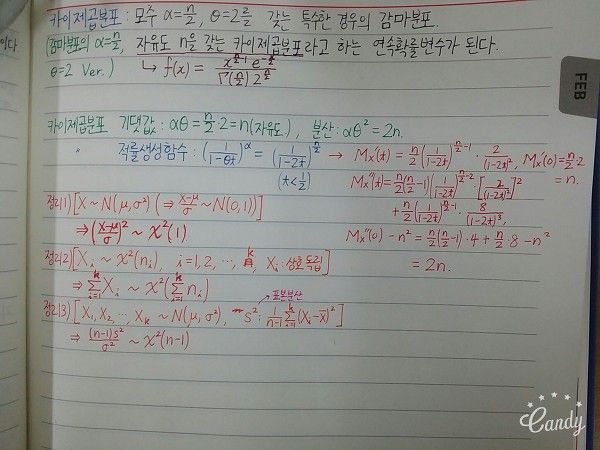 카이제곱분포 : 모수 α=n/2, θ=2를 갖는 특수한 경우의 감마분포.
(감마분포의 α=n/2, 자유도 n을 갖는 카이제곱분포라고 하는 연속확률변수가 된다.
θ=2 Ver.) ↳ f(x) = x^(n/2-1) e^(-x/2) / Γ(n/2) 2^(n/2)
이다
FEB
카이제곱분포 기댓값 : αθ = n/2·2 = n(자유도), 분산 : αθ² = 2n.
〃 적률생성함수 : (1/(1-θt))^α = (1/(1-2t))^(n/2) → Mx'(t) = n/2 (1/(1-2t))^(n/2-1) · 2/(1-2t)², Mx'(0) = n/2·2
(t<1/2) = n.
Mx''(t) = n/2(n/2-1)(1/(1-2t))^(n/2-2) · [2/(1-2t)²]²
+ n/2 (1/(1-2t))^(n/2-1) · 8/(1-2t)³,
Mx''(0) - n² = n/2(n/2-1)·4 + n/2·8 - n²
= 2n.
정리1) [X ~ N(μ, σ²) (⇒ (X-μ)/σ ~ N(0,1))]
⇒ ((X-μ)/σ)² ~ χ²(1)
정리2) [Xᵢ ~ χ²(nᵢ), i=1, 2, …, k, Xᵢ : 상호독립]
⇒ Σ(i=1→k) Xᵢ ~ χ²(Σ(i=1→k) nᵢ)
표본분산
정리3) [X₁, X₂, …, X_k ~ N(μ, σ²), S² : 1/(n-1) Σ(i=1→k) (Xᵢ-X̄)²]
⇒ (n-1)S²/σ² ~ χ²(n-1)
Candy